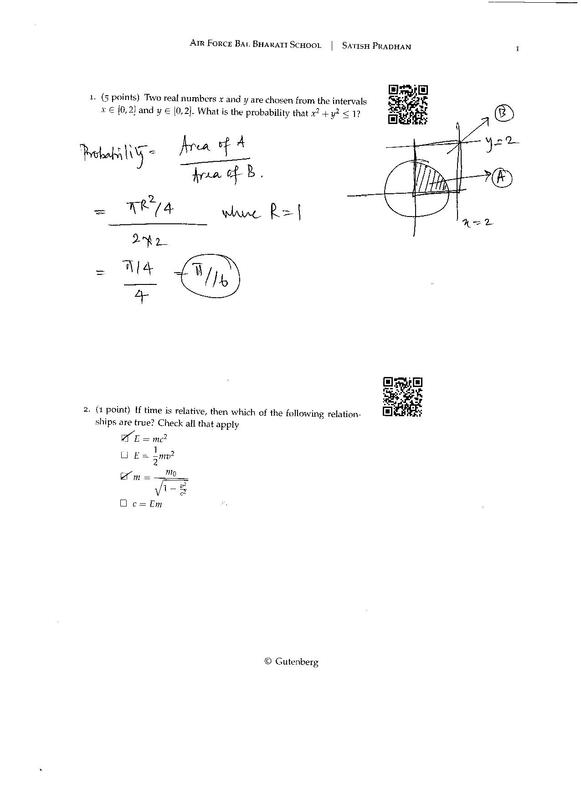 AIR FORCE BAL BHARATI SCHOOL | SATISH PRADHAN 1
1. (5 points) Two real numbers x and y are chosen from the intervals
x ∈ [0, 2] and y ∈ [0, 2]. What is the probability that x² + y² ≤ 1?
B
y = 2
A
x = 2
Probability = Area of A / Area of B.
= πR²/4 / 2×2 where R = 1
= π/4 / 4 = π/16
2. (1 point) If time is relative, then which of the following relation-
ships are true? Check all that apply
☑ E = mc²
☐ E = 1/2 mv²
☑ m = m₀ / √(1 − v²/c²)
☐ c = Em
© Gutenberg